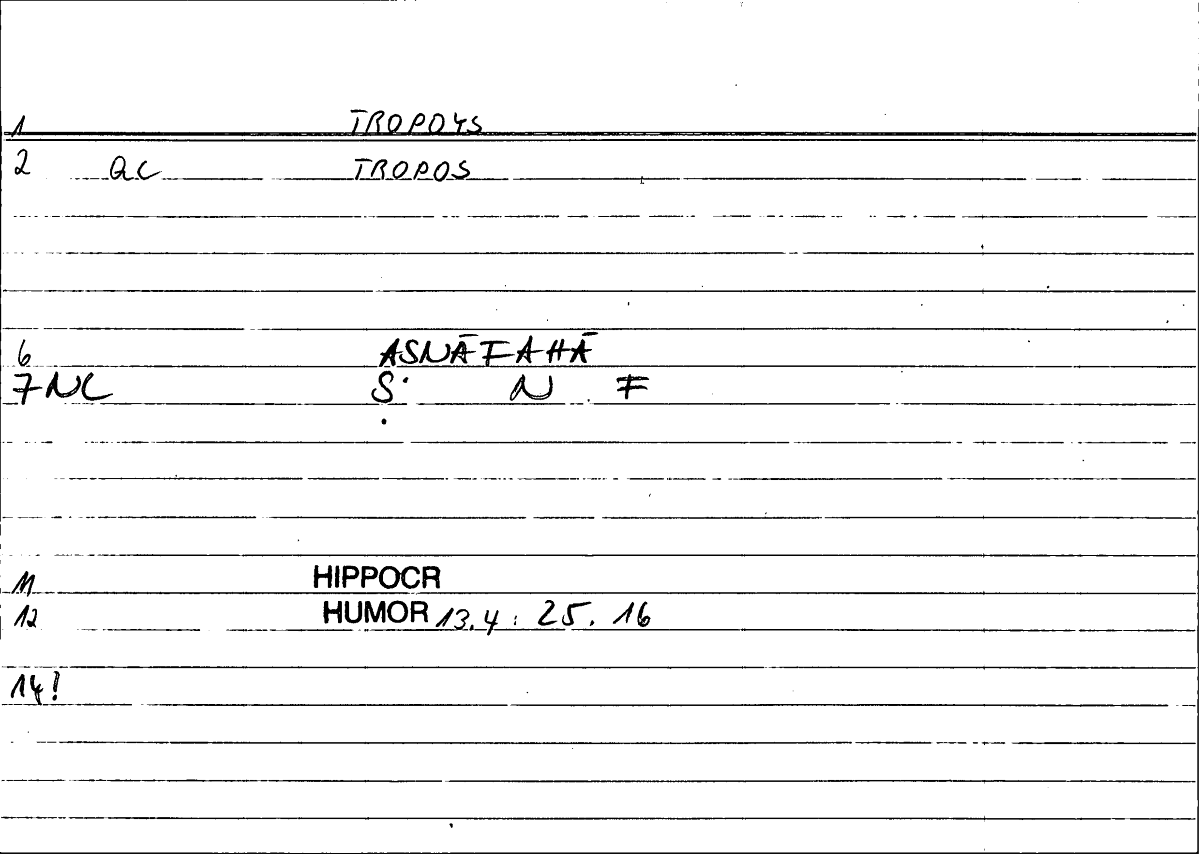 1 TROPOYS
2 QC TROPOS
6 ASNĀFAHĀ
7 NC Ṣ N F
11 HIPPOCR
12 HUMOR 13.4 : 25. 16
14!